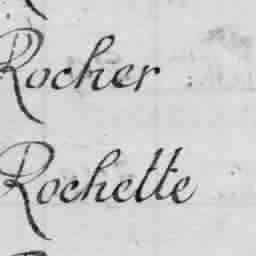 Rocher
Rochette